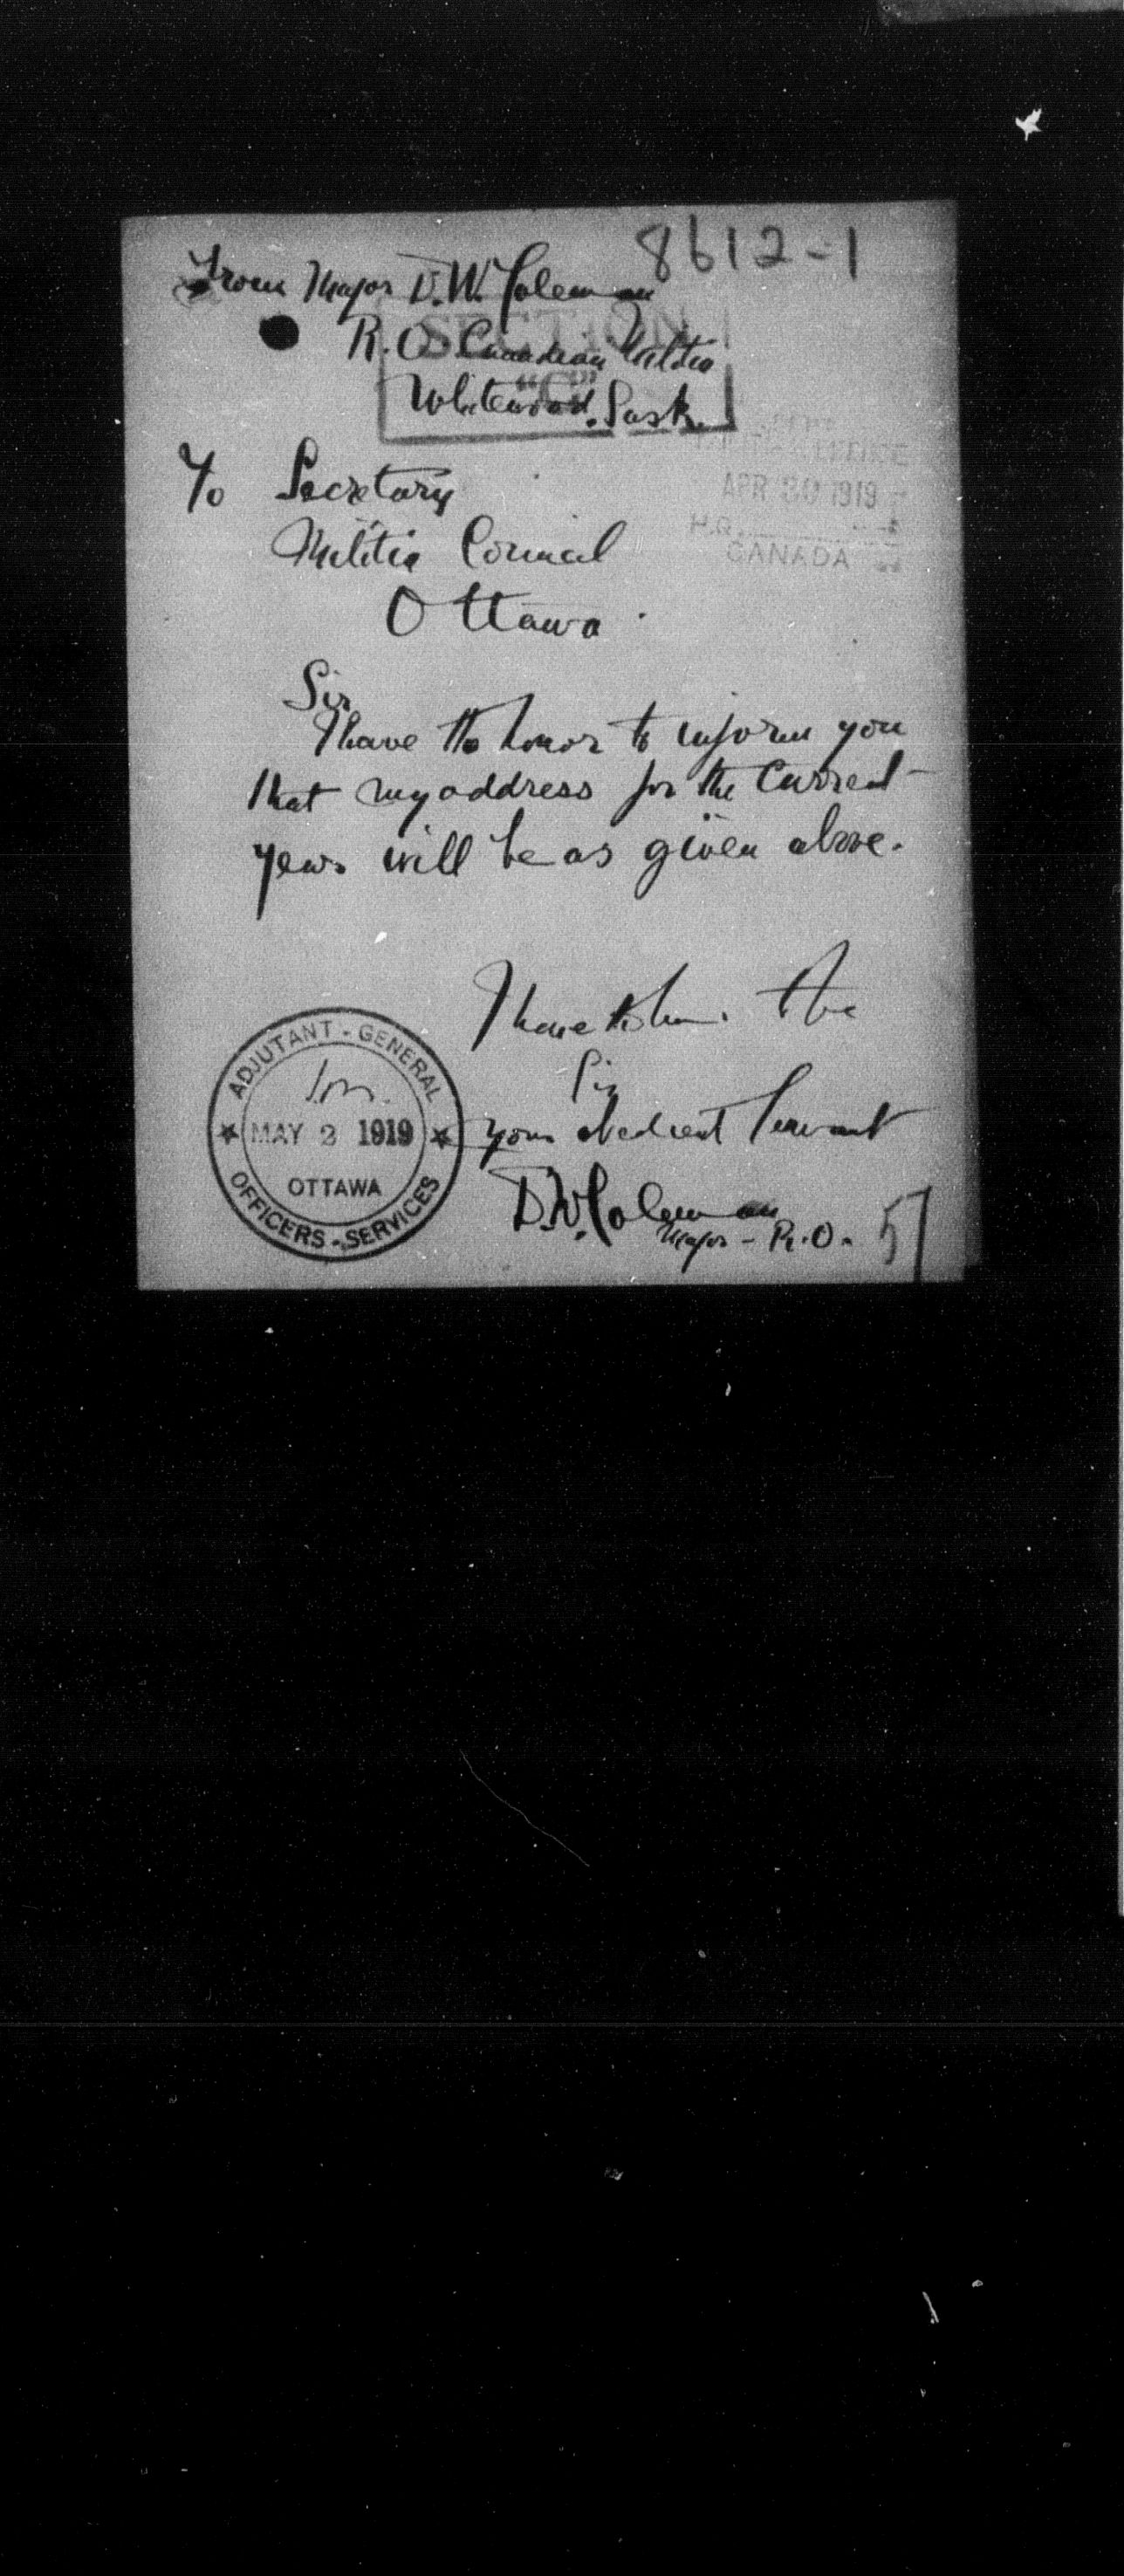 8612-1
From Major D.W. Coleman
R.O. Canadian Militia
Whitewood. Sask.
SECTION
"C"
To Secretary
Militia Council
Ottawa.
APR 30 1919
H.Q.
CANADA
Sir
I have the honor to inform you
that my address for the current
year will be as given above.
I have the hon. to be
Sir
your obedient Servant
D.W. Coleman
Major - R.O.
57
ADJUTANT-GENERAL
MAY 2 1919
OTTAWA
OFFICERS-SERVICES